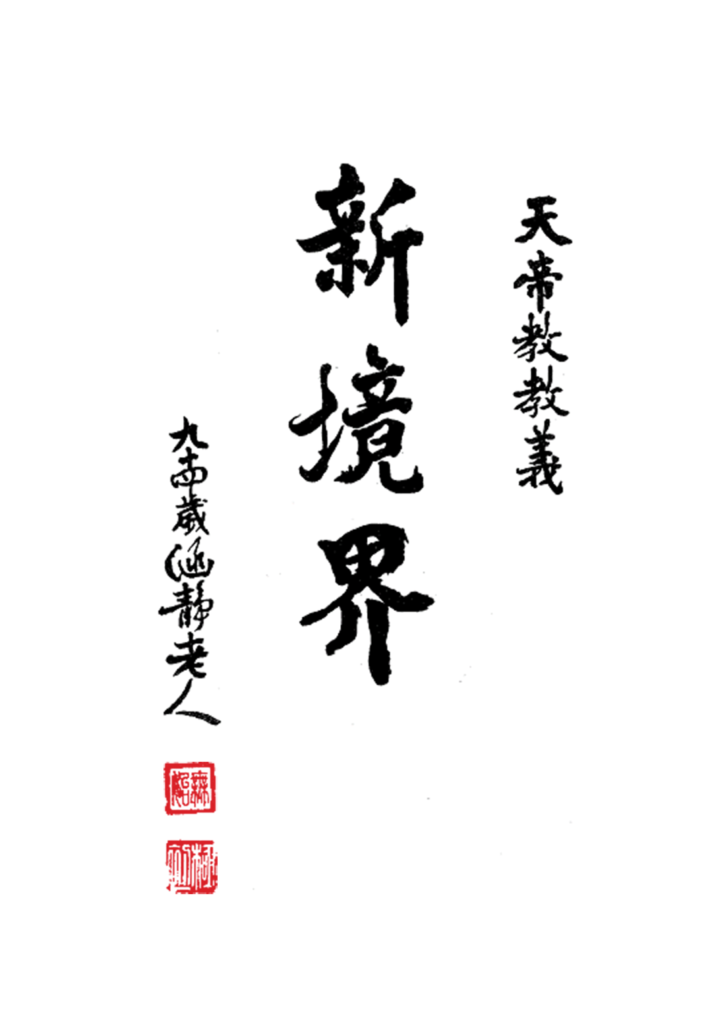 天帝教教義
新境界
九十四歲涵靜老人